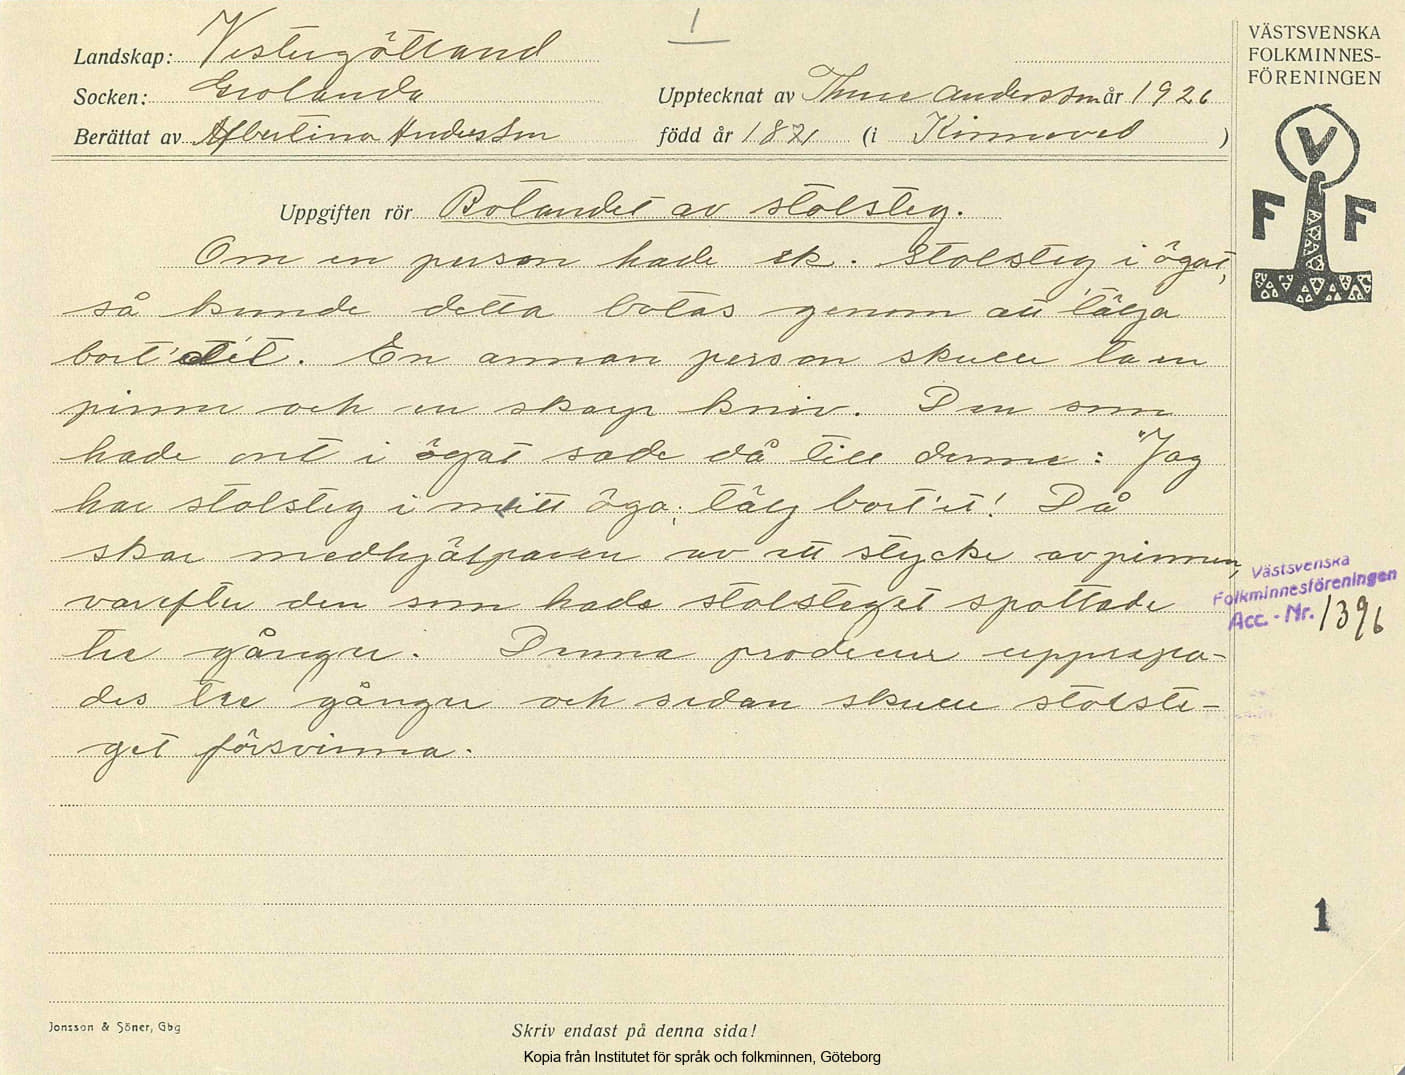 1
Landskap: Vestergötland
Socken: Grolanda
Upptecknat av Thure Andersson år 1926
Berättat av Albertina Andersson
född år 1871 (i Kinneved)
VÄSTSVENSKA
FOLKMINNES-
FÖRENINGEN
V
F F
Uppgiften rör Botandet av stolsteg.
Om en person hade sk. stolsteg i ögat,
så kunde detta botas genom att tälja
bort det. En annan person skulle ta en
pinne och en skarp kniv. Den som
hade ont i ögat sade då till denne: "Jag
har stolsteg i mitt öga, tälj bort'et! Då
skar medhjälparen av ett stycke av pinnen,
varefter den som hade stolsteget spottade
tre gånger. Denna procedur upprepa-
des tre gånger och sedan skulle stolste-
get försvinna.
Västsvenska
Folkminnesföreningen
Acc. - Nr. 1396
1
Jonsson & Söner, Gbg
Skriv endast på denna sida!
Kopia från Institutet för språk och folkminnen, Göteborg